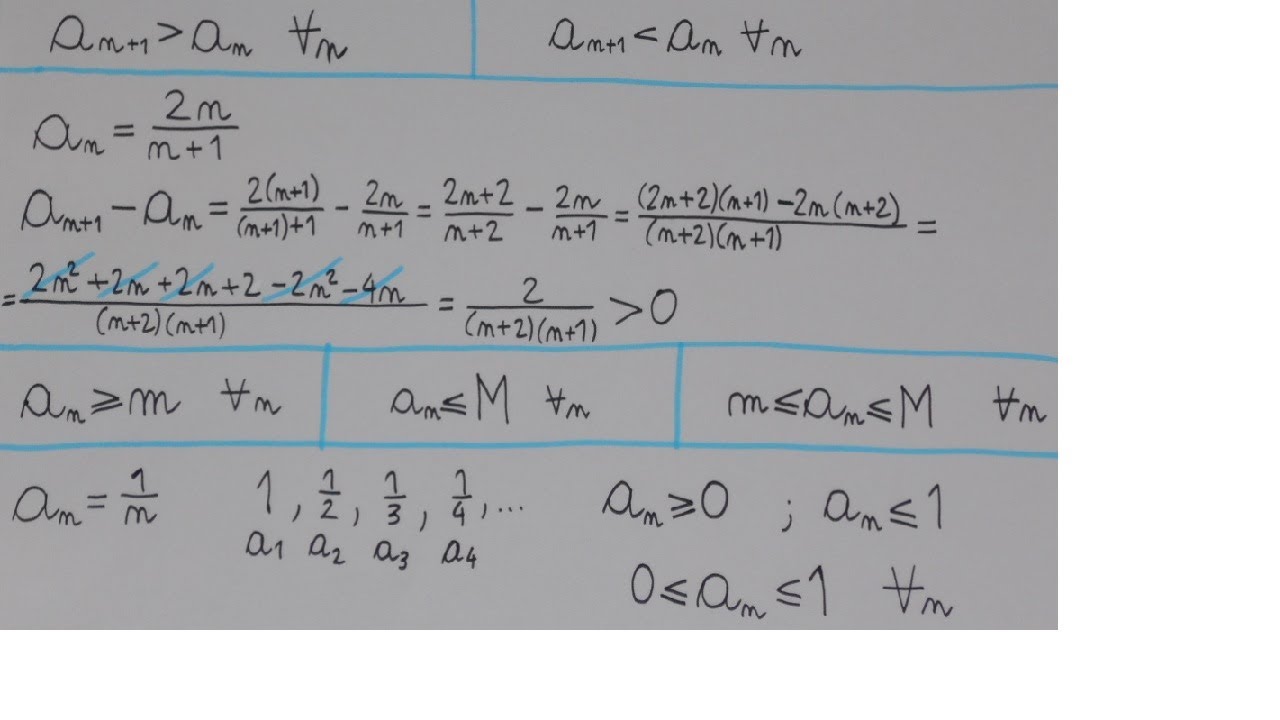 aₙ₊₁ > aₙ ∀n    aₙ₊₁ < aₙ ∀n
aₙ = 2n/(n+1)
aₙ₊₁ − aₙ = 2(n+1)/((n+1)+1) − 2n/(n+1) = (2n+2)/(n+2) − 2n/(n+1) = ((2n+2)(n+1) − 2n(n+2))/((n+2)(n+1)) =
= (2n² + 2n + 2n + 2 − 2n² − 4n)/((n+2)(n+1)) = 2/((n+2)(n+1)) > 0
aₙ ⩾ m ∀n    aₙ ⩽ M ∀n    m ⩽ aₙ ⩽ M ∀n
aₙ = 1/n    1, 1/2, 1/3, 1/4, ...    aₙ ⩾ 0 ; aₙ ⩽ 1
a₁ a₂ a₃ a₄
0 ⩽ aₙ ⩽ 1 ∀n